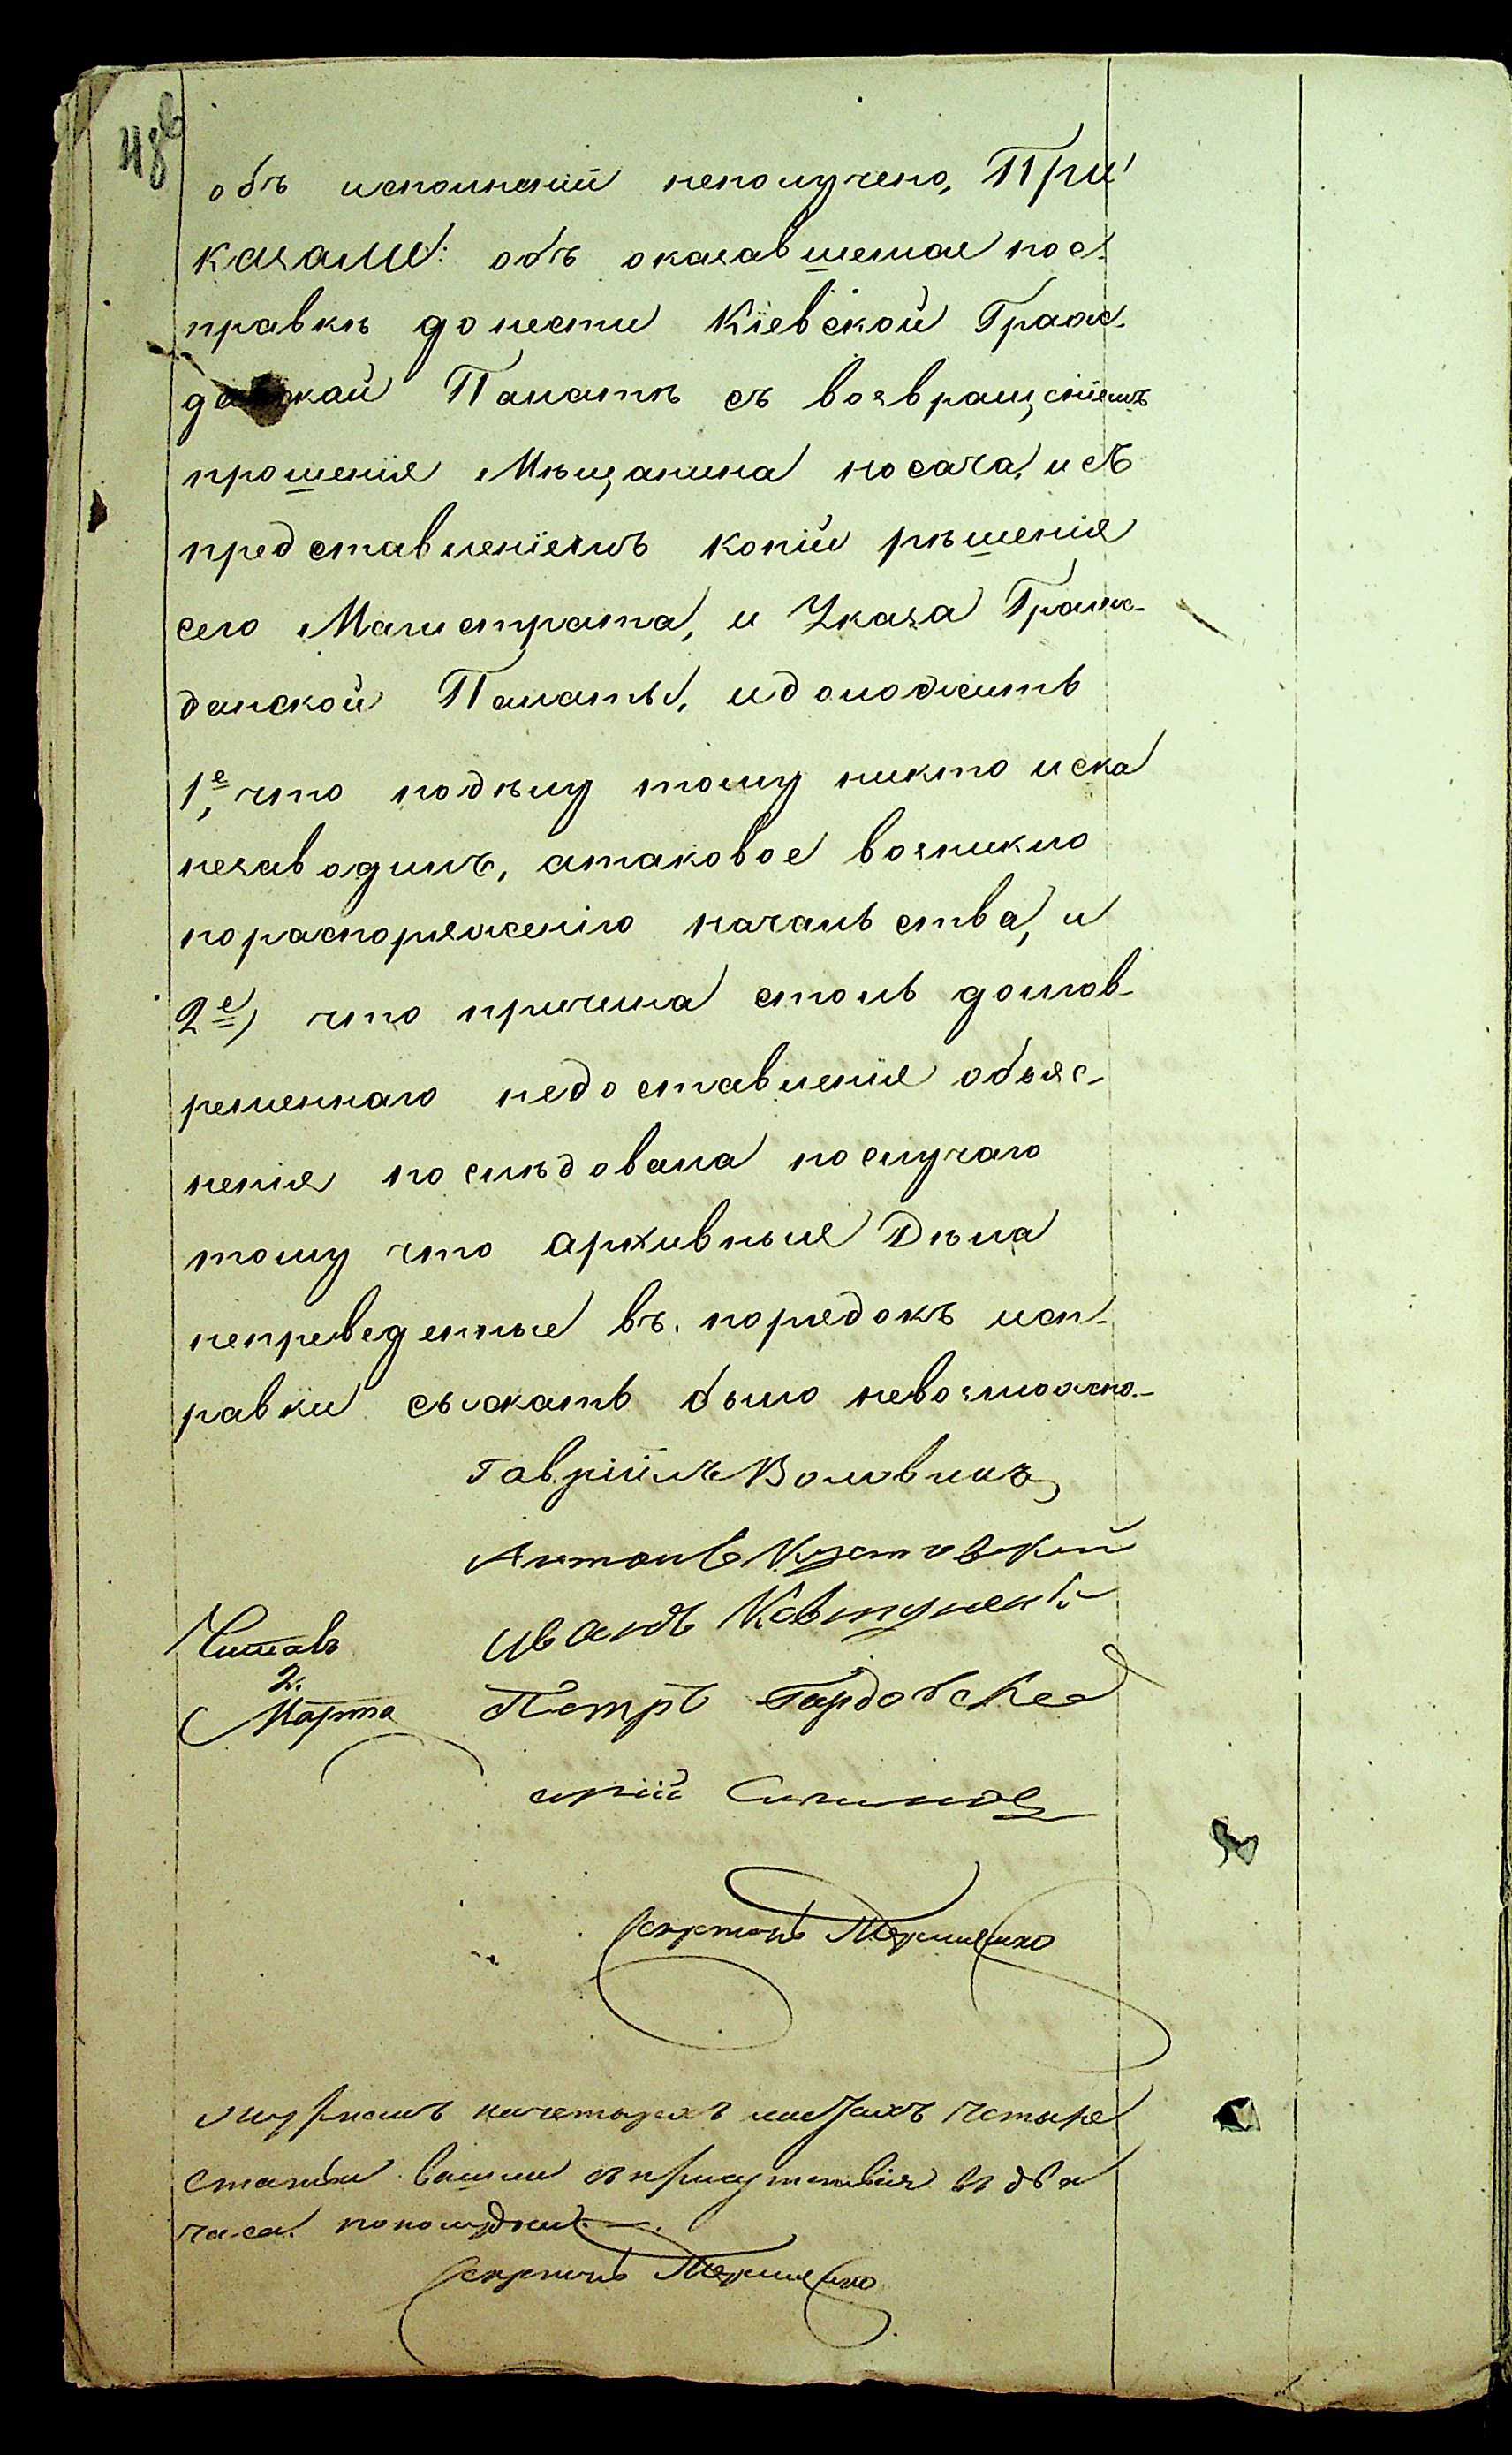 48
объ исполненіи неполучено, При
казали: объ оказавшемся пос-
правкѣ донести Кіевской Граж-
данской Палатѣ съ возвращеніемъ
прошенія Мѣщанина Носача, и съ
представленіемъ копіи рѣшенія
сего Магистрата, и Указа Граж-
данской Палаты, и доложить
1е, что подѣлу тому никто иска
незаводилъ, атаковое возникло
пораспоряженію началства, и
2е) что причина столь долгов-
ременнаго недоставленія объяс-
ненія послѣдовала послучаю
тому что архивныя Дѣла
неприведенные въ порядокъ исп-
равки сыскать было невозможно.-
Гавріилъ Воловикъ
Антонъ Кустовскій
Иванъ Ковтуненко
Читалъ
2.
Марта
Петръ Гардовскій
Секретарь
журналъ начетырехъ листахъ четыре
статьи. вышли съ присутствія въ два
часа. пополудни.
Секретарь